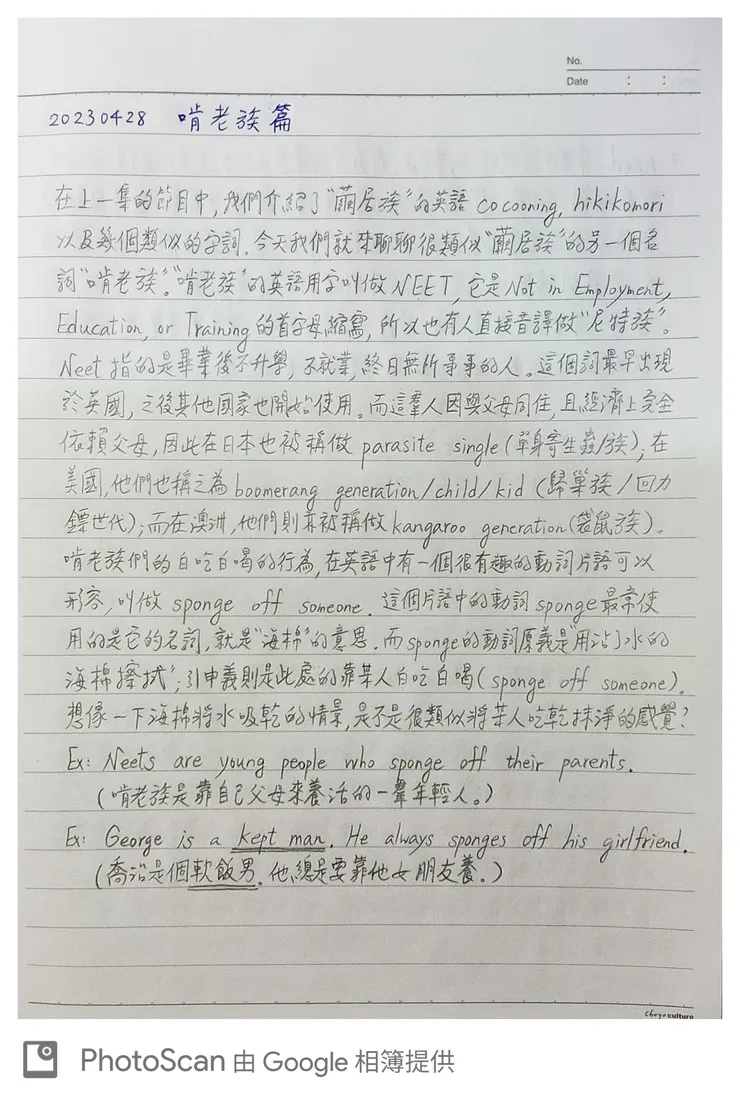 No.
Date : :
20230428 啃老族篇
在上一集的節目中,我們介紹了"繭居族"的英語 cocooning, hikikomori
以及幾個類似的字詞. 今天我們就來聊聊很類似"繭居族"的另一個名
詞"啃老族"。"啃老族"的英語用字叫做 NEET, 它是 Not in Employment,
Education, or Training 的首字母縮寫, 所以也有人直接音譯做"尼特族"。
Neet 指的是畢業後不升學, 不就業, 終日無所事事的人。這個詞最早出現
於英國, 之後其他國家也開始使用。而這羣人因與父母同住, 且經濟上完全
依賴父母, 因此在日本也被稱做 parasite single (單身寄生蟲/族); 在
美國, 他們也稱之為 boomerang generation/child/kid (歸巢族/回力
鏢世代); 而在澳洲, 他們則被稱做 kangaroo generation(袋鼠族)。
啃老族們的白吃白喝的行為, 在英語中有一個很有趣的動詞片語可以
形容, 叫做 sponge off someone. 這個片語中的動詞 sponge 最常使
用的是它的名詞, 就是"海棉"的意思. 而 sponge 的動詞原義是"用沾了水的
海棉擦拭"; 引申義則是此處的靠某人白吃白喝( sponge off someone).
想像一下海棉將水吸乾的情景, 是不是很類似將某人吃乾抹淨的感覺?
Ex: Neets are young people who sponge off their parents.
(啃老族是靠自己父母來養活的一羣年輕人。)
Ex: George is a kept man. He always sponges off his girlfriend.
(喬治是個軟飯男. 他總是要靠他女朋友養.)
Choyo culture
PhotoScan 由 Google 相簿提供